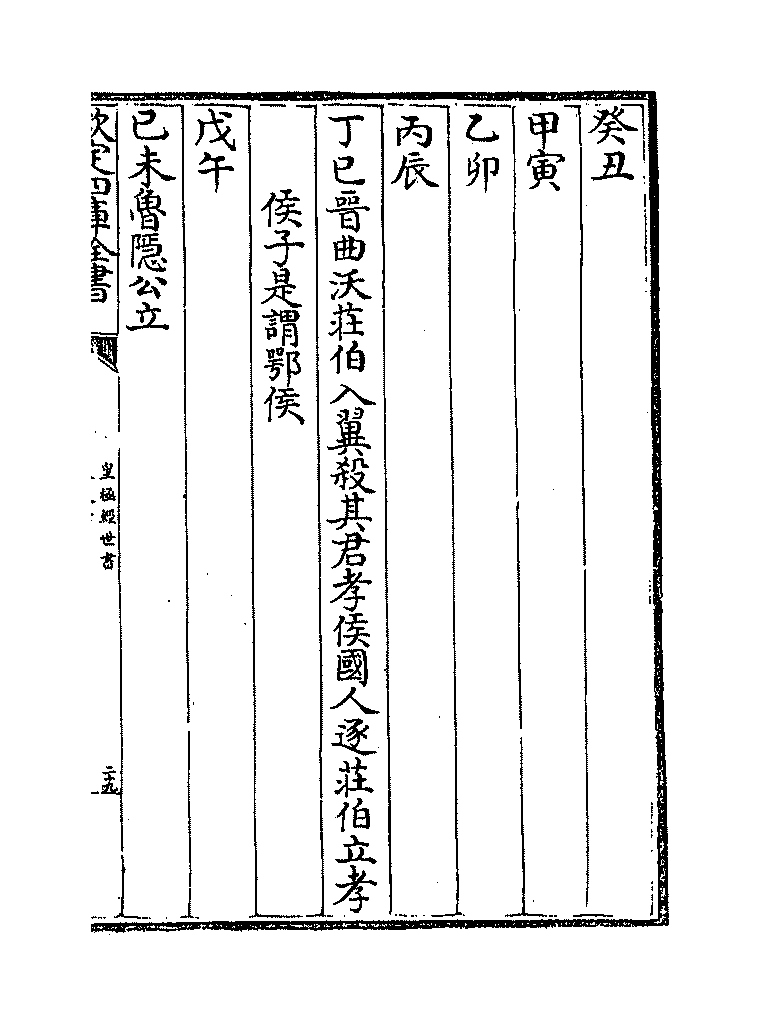 癸丑
甲寅
乙卯
丙辰
丁巳晉曲沃莊伯入翼殺其君孝侯國人逐莊伯立孝
侯子是謂鄂侯
戊午
己未魯隱公立
欽定四庫全書
皇極經世書
二十九